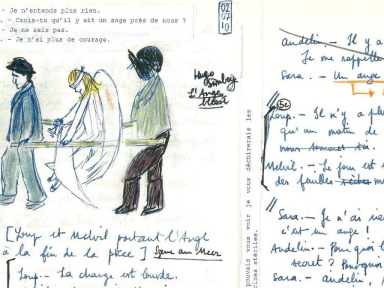 - Je n'entends plus rien.
- Crois-tu qu'il y ait un ange près de nous ?
- Je ne sais pas.
- Je n'ai plus de courage.
02
07
10
Hugo
Simberg
L'Ange
blessé
[Loup et Melvil portant l'Ange
à la fin de la pièce]
Loup. - La charge est lourde.
pouvais vous voir je vous déchirerais les
stériles.
Andelin. - Il y a
Je me rappelle
Sara. - Un ange
Loup. - Il n'y a
qu'un matin de
nous sommes
Melvil. - Le jour est
des feuilles
Sara. - Je n'ai
c'est un ange !
Andelin. - Pourquoi
secret ? Pourquoi
Sara. - andelin,